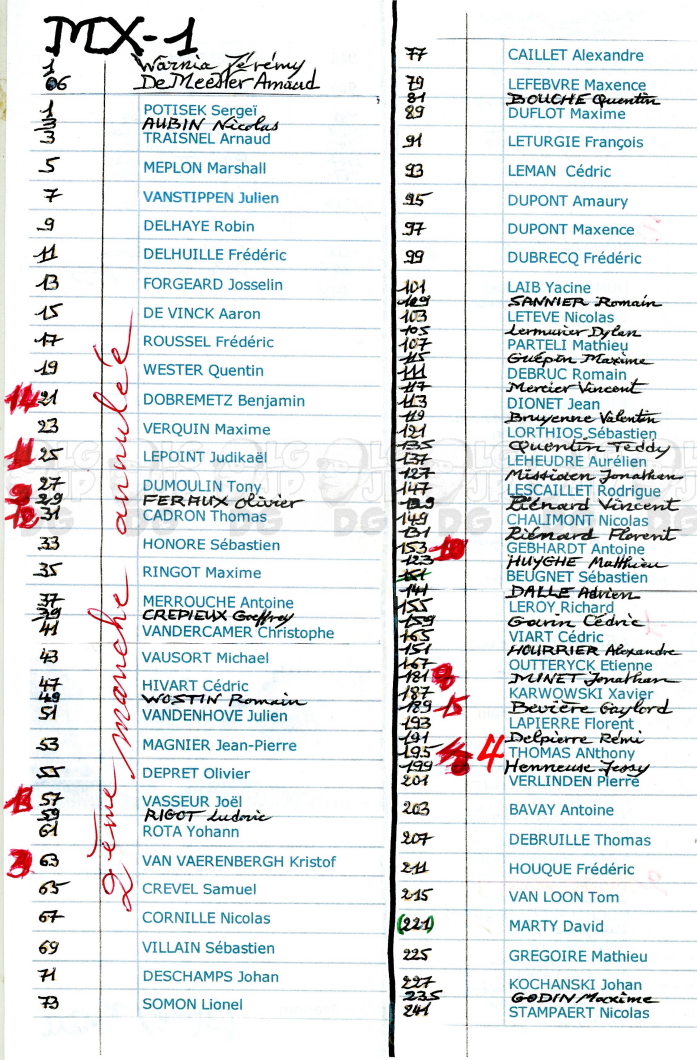 MX-1
1 Warnia Jérémy
06 De Meester Arnaud
1 POTISEK Sergeï
3 AUBIN Nicolas
3 TRAISNEL Arnaud
5 MEPLON Marshall
7 VANSTIPPEN Julien
9 DELHAYE Robin
11 DELHUILLE Frédéric
13 FORGEARD Josselin
15 DE VINCK Aaron
17 ROUSSEL Frédéric
19 WESTER Quentin
14 21 DOBREMETZ Benjamin
23 VERQUIN Maxime
11 25 LEPOINT Judikaël
9 27 DUMOULIN Tony
29 FERAUX Olivier
12 31 CADRON Thomas
33 HONORE Sébastien
35 RINGOT Maxime
37 MERROUCHE Antoine
39 CREPIEUX Geoffroy
41 VANDERCAMER Christophe
43 VAUSORT Michael
47 HIVART Cédric
49 WOSTIN Romain
51 VANDENHOVE Julien
53 MAGNIER Jean-Pierre
55 DEPRET Olivier
13 57 VASSEUR Joël
59 RIGOT Ludovic
61 ROTA Yohann
3 63 VAN VAERENBERGH Kristof
65 CREVEL Samuel
67 CORNILLE Nicolas
69 VILLAIN Sébastien
71 DESCHAMPS Johan
73 SOMON Lionel
2ème manche annulée
77 CAILLET Alexandre
79 LEFEBVRE Maxence
81 BOUCHE Quentin
89 DUFLOT Maxime
91 LETURGIE François
93 LEMAN Cédric
95 DUPONT Amaury
97 DUPONT Maxence
99 DUBRECQ Frédéric
101 LAIB Yacine
109 SANNIER Romain
103 LETEVE Nicolas
105 Lermurier Dylan
107 PARTELI Mathieu
115 Guépin Maxime
111 DEBRUC Romain
117 Mercier Vincent
113 DIONET Jean
119 Bruyenne Valentin
121 LORTHIOS Sébastien
135 Quentin Teddy
137 LEHEUDRE Aurélien
127 Missiden Jonathan
147 LESCAILLET Rodrigue
129 Riénard Vincent
149 CHALIMONT Nicolas
131 Riénard Florent
153 10 GEBHARDT Antoine
123 HUYGHE Matthieu
151 BEUGNET Sébastien
141 DALLE Adrien
155 LEROY Richard
159 Gouin Cédric
165 VIART Cédric
151 HOURRIER Alexandre
167 OUTTERYCK Etienne
181 8 MINET Jonathan
187 KARWOWSKI Xavier
189 15 Bevière Gaylord
193 LAPIERRE Florent
191 Delpierre Rémi
195 4 THOMAS ANthony
199 Henneuse Jessy
201 VERLINDEN Pierre
203 BAVAY Antoine
207 DEBRUILLE Thomas
211 HOUQUE Frédéric
215 VAN LOON Tom
(221) MARTY David
225 GREGOIRE Mathieu
227 KOCHANSKI Johan
235 GODIN Maxime
241 STAMPAERT Nicolas